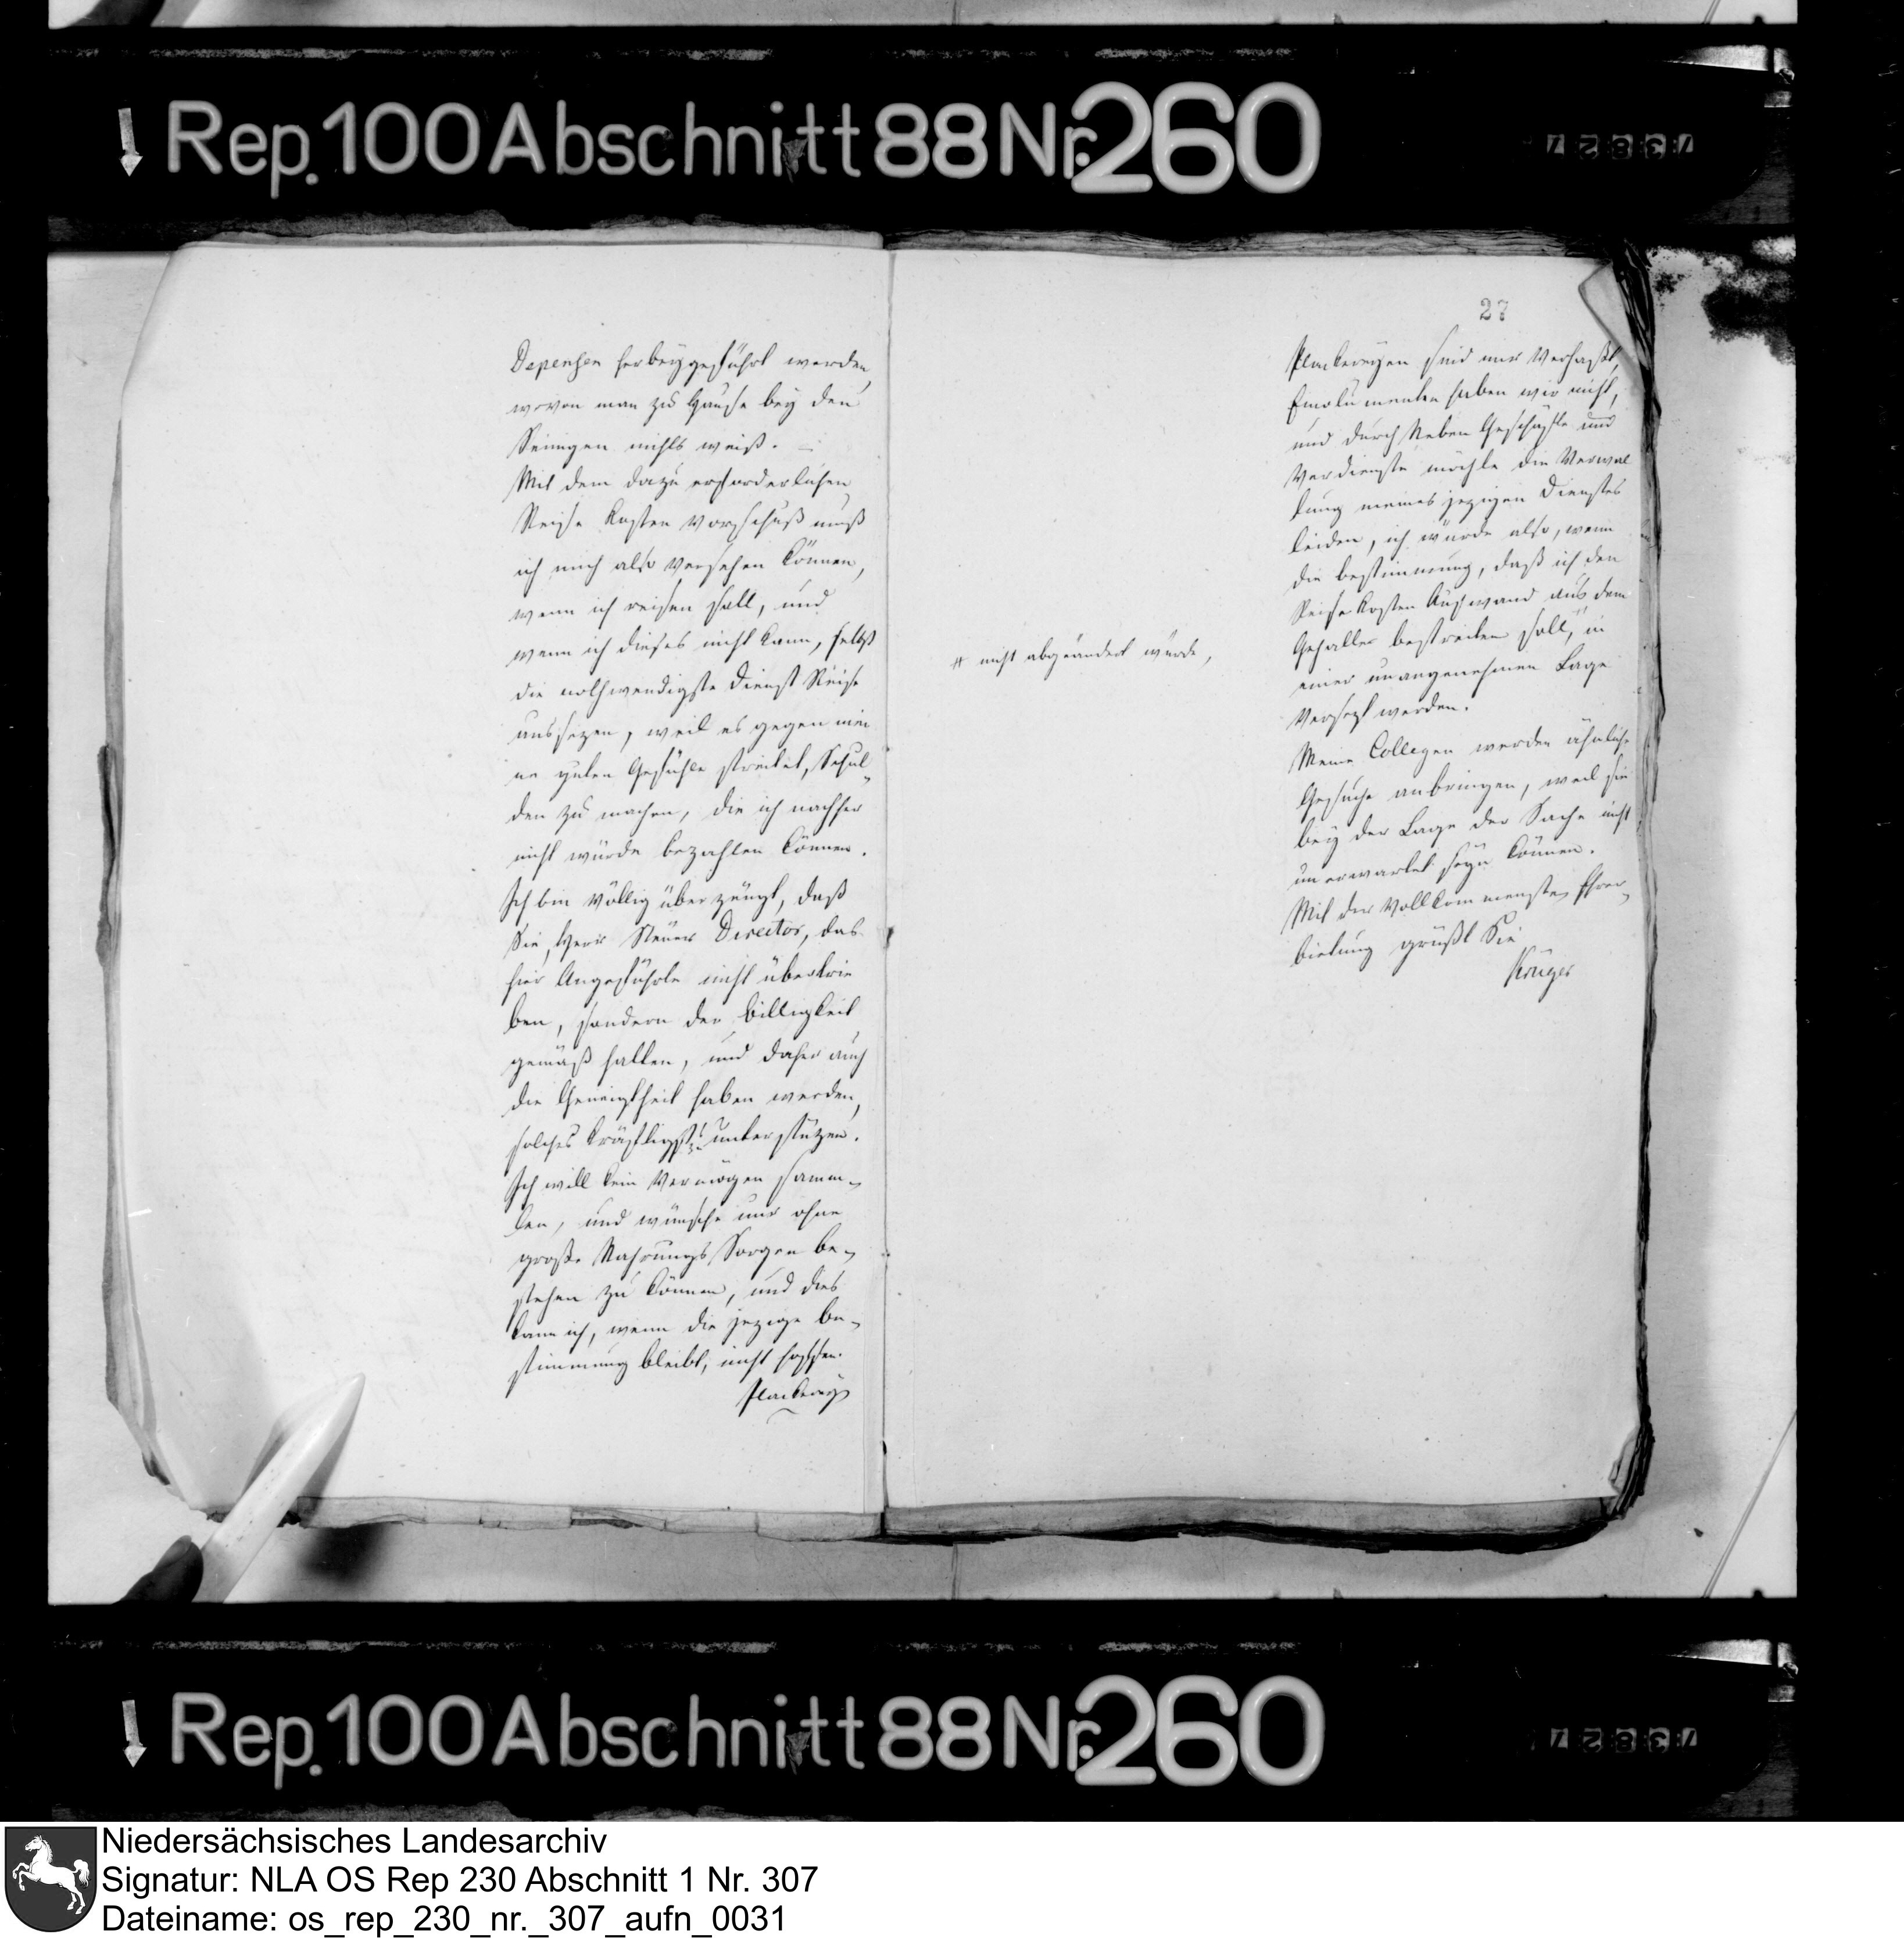 Rep. 100 Abschnitt 88 Nr. 260
73827
Depensen herbeygeführt werden,
wovon man zu Hause bey den
Seinigen nichts weiß. –
Mit dem dazu erforderlichen
Reise Kosten Vorschuß muß
ich mich also versehen können,
wenn ich reisen soll, und
wenn ich dieses nicht kann, selbst
die nothwendigste Dienst Reise
aussezen, weil es gegen mei
ne guten Gefühle streitet, Schul„
den zu machen, die ich nachher
nicht würde bezahlen können.
Ich bin völlig überzeugt, daß
Sie, Herr Steuer Director, das
hier Angeführte nicht übertrie
ben, sondern der Billigkeit
gemäß halten, und daher auch
die Geneigtheit haben werden,
solches kräftigst zu unterstüzen.
Ich will kein Vermögen samm„
len, und wünsche nur ohne
große Nahrungs Sorgen be„
stehen zu können, und dies
kann ich, wenn die jezige Be„
stimmung bleibt, nicht hoffen.
Plackerey
27
Plackereyen sind mir verhaßt,
Emolumenten haben wir nicht,
und durch Neben Geschäfte und
Verdienste möchte die Verwal
tung meines jezigen Dienstes
leiden, ich würde also, wenn
die Bestimmung, daß ich den
Reise Kosten Aufwand aus dem
Gehalte bestreiten soll, # in
einer unangenehmen Lage
versezt werden.
# nicht abgeändert würde,
Meine Collegen werden ähnliche
Gesuche anbringen, weil sie
bey der Lage der Sache nicht
unerwartet seyn können.
Mit der vollkommensten Ehrer„
bietung grüßt Sie
Krüger
Rep. 100 Abschnitt 88 Nr. 260
73827
Niedersächsisches Landesarchiv
Signatur: NLA OS Rep 230 Abschnitt 1 Nr. 307
Dateiname: os_rep_230_nr._307_aufn_0031